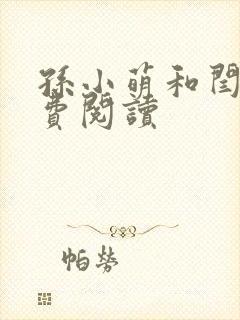 孫小萌和閏
費閱讀
帕勞